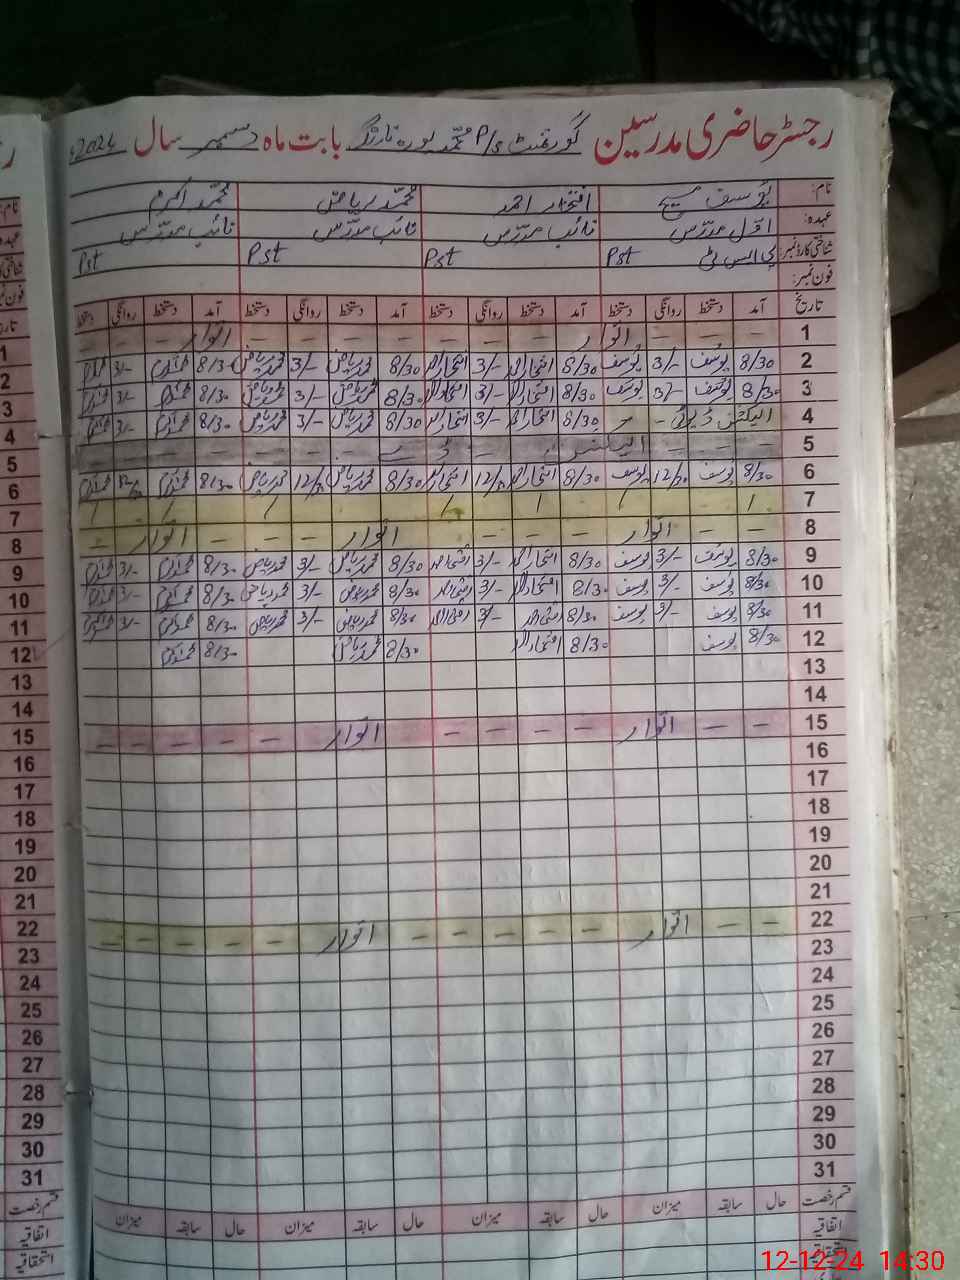 رجسٹر حاضری مدرسین گورنمنٹ P/S محمد پورہ بابت ماہ دسمبر سال 2024ء
نام: یوسف مسیح افتخار احمد محمد ریاض محمد اکرم
عہدہ: اول مدرس نائب مدرس نائب مدرس نائب مدرس
شناختی کارڈ نمبر: پی ایس ٹی Pst Pst Pst Pst
فون نمبر:
تاریخ آمد دستخط روانگی دستخط آمد دستخط روانگی دستخط آمد دستخط روانگی دستخط آمد دستخط روانگی دستخط
1 — — اتوار — — — — — — — اتوار — — —
2 8/30 یوسف 3/- یوسف 8/30 افتخار احمد 3/- افتخار احمد 8/30 محمد ریاض 3/- محمد ریاض 8/30 محمد اکرم 3/- محمد اکرم
3 8/30 یوسف 3/- یوسف 8/30 افتخار احمد 3/- افتخار احمد 8/30 محمد ریاض 3/- محمد ریاض 8/30 محمد اکرم 3/- محمد اکرم
4 الیکشن ڈیوٹی — — 8/30 افتخار احمد 3/- افتخار احمد 8/30 محمد ریاض 3/- محمد ریاض 8/30 محمد اکرم 3/- محمد اکرم
5 — — — الیکشن — ڈے — — — — — —
6 8/30 یوسف 12/30 یوسف 8/30 افتخار احمد 12/30 افتخار احمد 8/30 محمد ریاض 12/30 محمد ریاض 8/30 محمد اکرم محمد اکرم
7
8 — — اتوار — — — — اتوار — — — اتوار —
9 8/30 یوسف 3/- یوسف 8/30 افتخار احمد 3/- افتخار احمد 8/30 محمد ریاض 3/- محمد ریاض 8/30 محمد اکرم 3/- محمد اکرم
10 8/30 یوسف 3/- یوسف 8/30 افتخار احمد 3/- افتخار احمد 8/30 محمد ریاض 3/- محمد ریاض 8/30 محمد اکرم 3/- محمد اکرم
11 8/30 یوسف 3/- یوسف 8/30 افتخار احمد 3/- افتخار احمد 8/30 محمد ریاض 3/- محمد ریاض 8/30 محمد اکرم 3/- محمد اکرم
12 8/30 یوسف 8/30 افتخار احمد 8/30 محمد ریاض 8/30 محمد اکرم
13
14
15 — — اتوار — — — — — اتوار — — — — —
16
17
18
19
20
21
22 — — اتوار — — — — — اتوار — — — — —
23
24
25
26
27
28
29
30
31
قسم رخصت حال سابقہ میزان حال سابقہ میزان حال سابقہ میزان حال سابقہ میزان
اتفاقیہ
استحقاقیہ
12-12-24 14:30